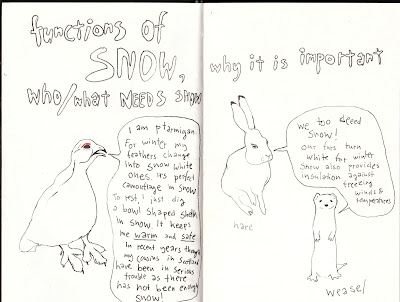 functions of
SNOW,
who/what NEEDS
why it is important
I am ptarmigan.
For winter my
feathers change
into snow white
ones. its perfect
camouflage in snow
To rest, I just dig
a bowl shaped
in snow. It keeps
me warm and safe
In recent years though
my cousins in Scotland
have been in serious
trouble as there
has not been enough
snow!
we too need
snow!
our furs turn
white for winter
snow also provides
insulation against
freezing
winds &
temperatures
hare
weasel